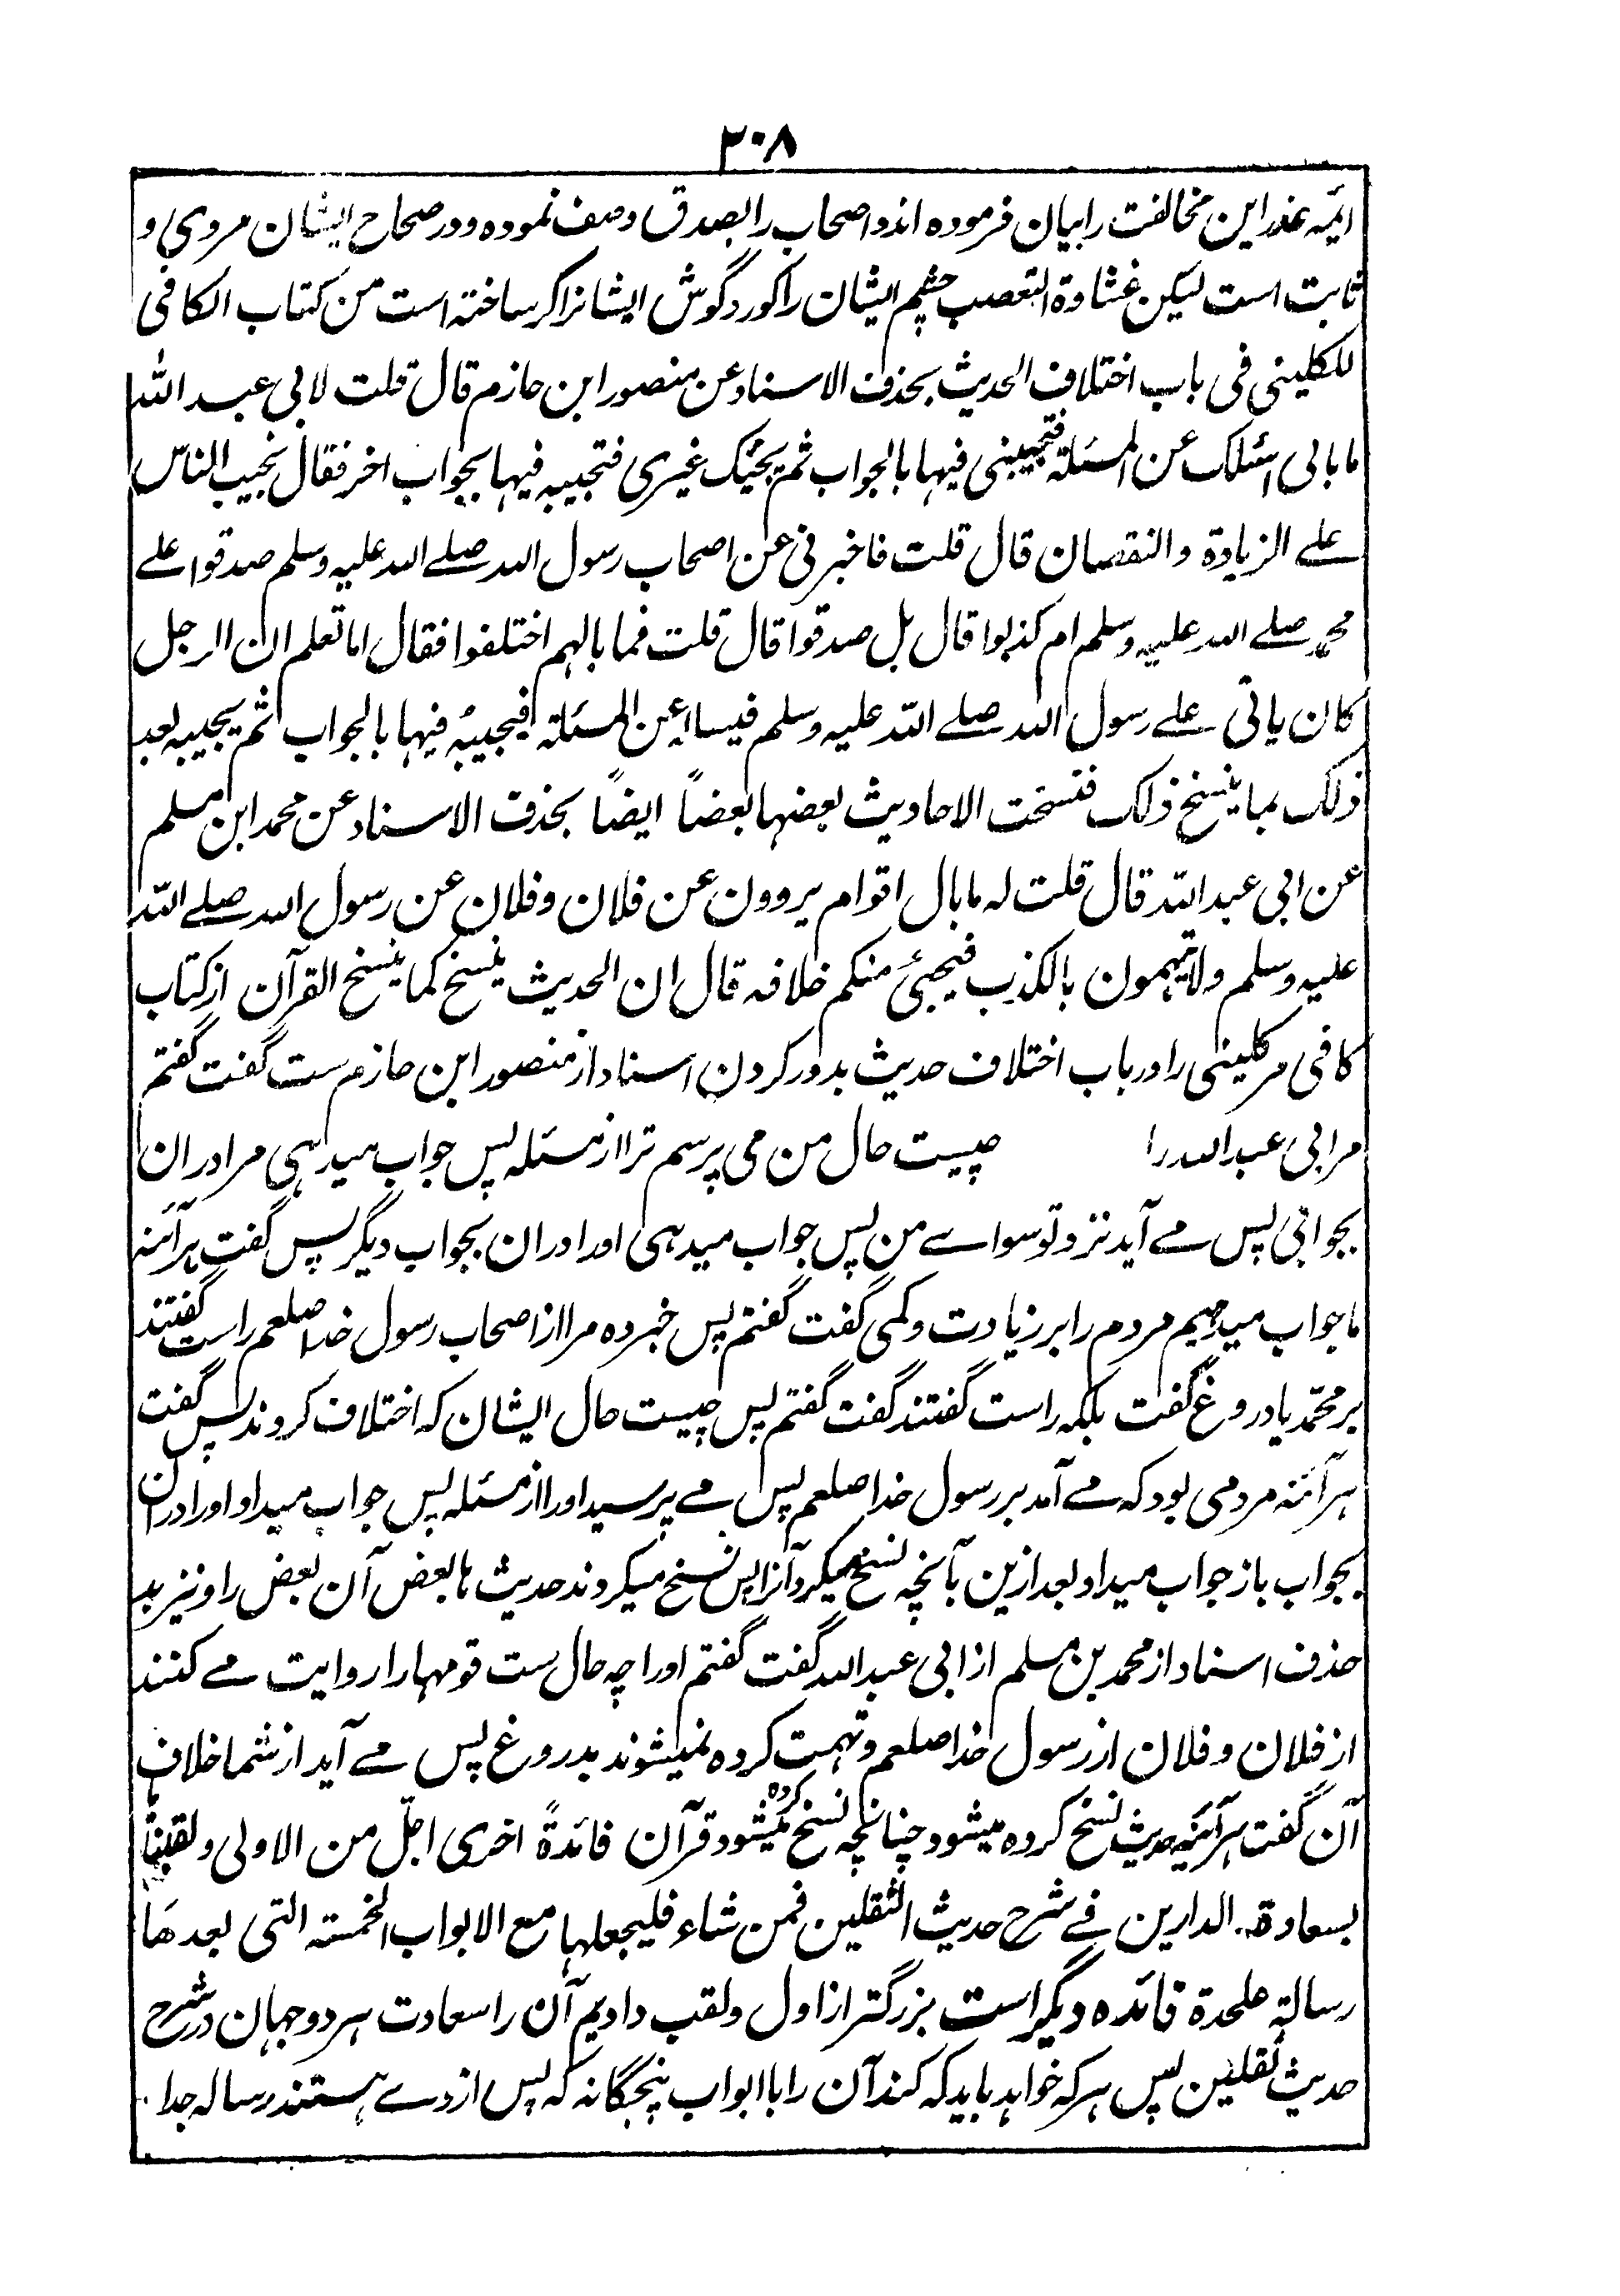 ۲۰۸
ائمه عذر این مخالفت را بیان فرموده اند و اصحاب را بصدق وصف نموده و در صحاح ایشان مروی و
ثابت است لیکن غشاوة التعصب چشم ایشان را کور و گوش ایشانرا کر ساخته است من کتاب الکافی
للکلینی فی باب اختلاف الحدیث بحذف الاسناد عن منصور ابن حازم قال قلت لابی عبد الله
ما بالی اسئلک عن المسئلة فتجیبنی فیها بالجواب ثم یجیئک غیری فتجیبه فیها بجواب اخر فقال نجیب الناس
علے الزیادة والنقصان قال قلت فاخبرنی عن اصحاب رسول الله صلے الله علیه وسلم صدقوا علے
محمد صلے الله علیه وسلم ام کذبوا قال بل صدقوا قال قلت فما بالهم اختلفوا فقال اما تعلم ان الرجل
کان یاتی علے رسول الله صلے الله علیه وسلم فیساله عن المسئلة فیجیبه فیها بالجواب ثم یجیبه بعد
ذلک بما ینسخ ذلک فنسخت الاحادیث بعضها بعضاً ایضاً بحذف الاسناد عن محمد ابن مسلم
عن ابی عبد الله قال قلت له ما بال اقوام یروون عن فلان وفلان عن رسول الله صلے الله
علیه وسلم ولا یتهمون بالکذب فیجیئ منکم خلافه قال ان الحدیث ینسخ کما ینسخ القرآن از کتاب
کافی مر کلینی را در باب اختلاف حدیث بدور کردن اسناد از منصور ابن حازم ست گفت گفتم
مر ابی عبد الله را چیست حال من می پرسم ترا از مسئله پس جواب میدهی مرا در ان
بجوابی پس مے آید نزد تو سواے من پس جواب میدهی او را در ان بجواب دیگر پس گفت هرآئنه
ما جواب میدهیم مردم را بر زیادت و کمی گفت گفتم پس خبر ده مرا از اصحاب رسول خدا صلعم راست گفتند
بر محمد یا دروغ گفت بلکه راست گفتند گفت گفتم پس چیست حال ایشان که اختلاف کردند پس گفت
هرآئنه مردمی بود که مے آمد بر رسول خدا صلعم پس مے پرسید او را از مسئله پس جواب میداد او را دران
بجواب باز جواب میداد بعد ازین بآنچه نسخ میکرد آنرا پس نسخ میکردند حدیث ها بعض آن بعض را و نیز بـ
حذف اسناد از محمد بن مسلم از ابی عبد الله گفت گفتم او را چه حال ست قومها را روایت مے کنند
از فلان و فلان از رسول خدا صلعم و تهمت کرده نمیشوند بدروغ پس مے آید از شما خلاف
آن گفت هرآئینه حدیث نسخ کرده میشود چنانچه نسخ کرده میشود قرآن فائدةً اخری اجلّ من الاولی ولقبناها
بسعادة الدارین فے شرح حدیث الثقلین فمن شاء فلیجعلها مع الابواب الخمسته التی بعدها
رسالة علحدة فائده دیگر است بزرگتر از اول و لقب دادیم آن را سعادت هر دو جهان در شرح
حدیث ثقلین پس هر که خواهد باید که کند آن را با ابواب پنجگانه که پس از وے هستند رساله جدا